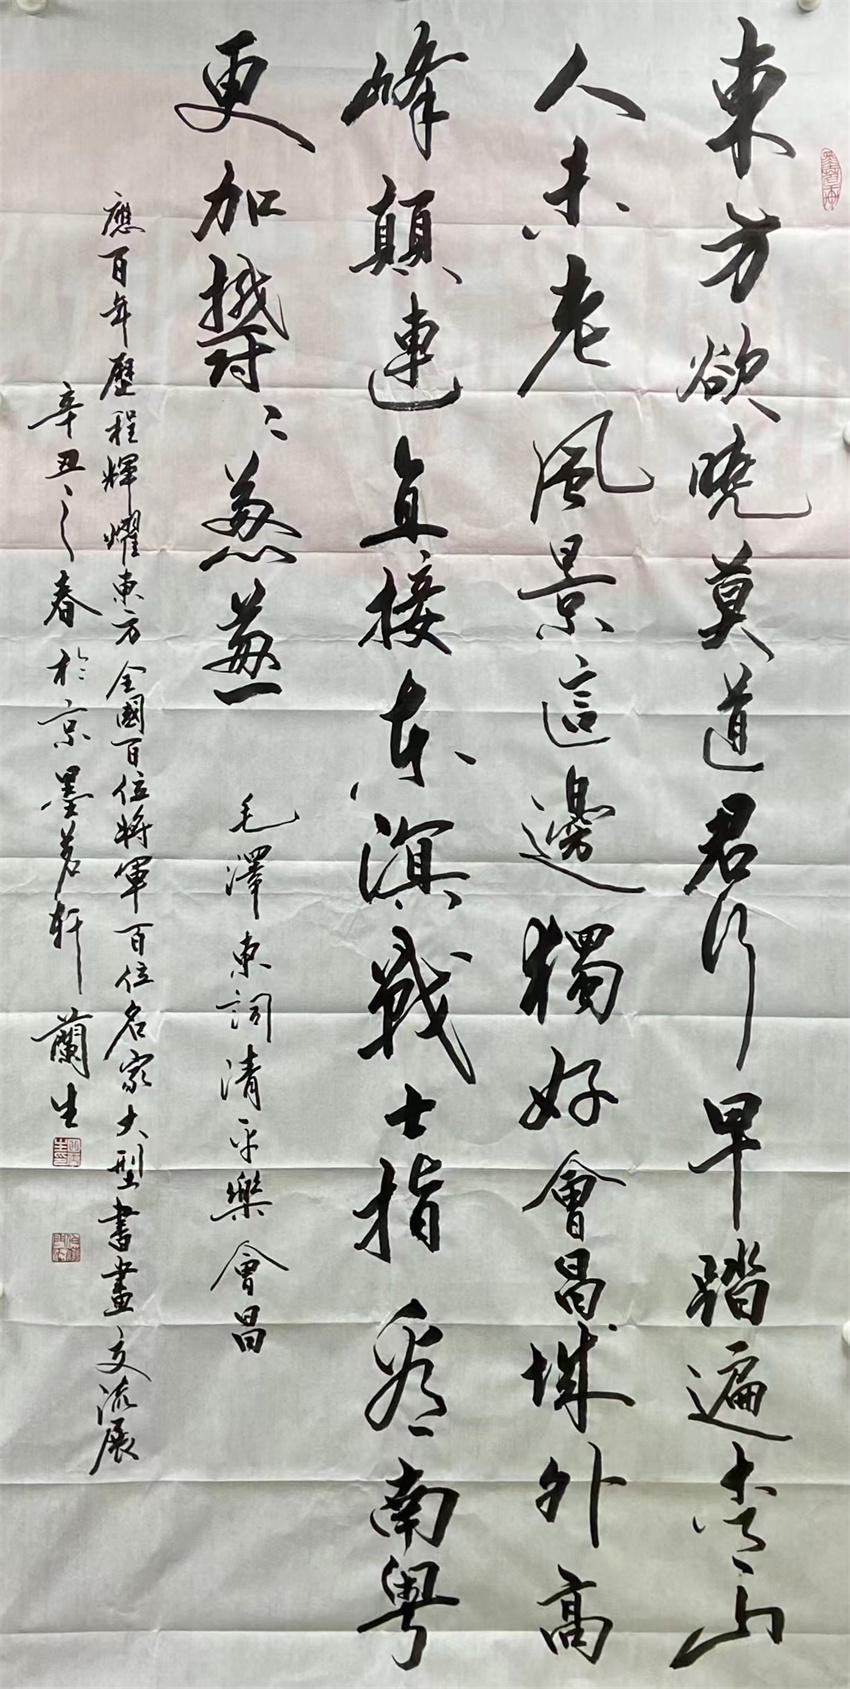 東方欲曉莫道君行早踏遍青山
人未老風景這邊獨好會昌城外高
峰顛連直接東溟戰士指看南粵
更加鬱〻蔥蔥
毛澤東詞清平樂會昌
應百年歷程輝耀東方全國百位將軍百位名家大型書畫交流展
辛丑之春於京墨茗軒蘭生